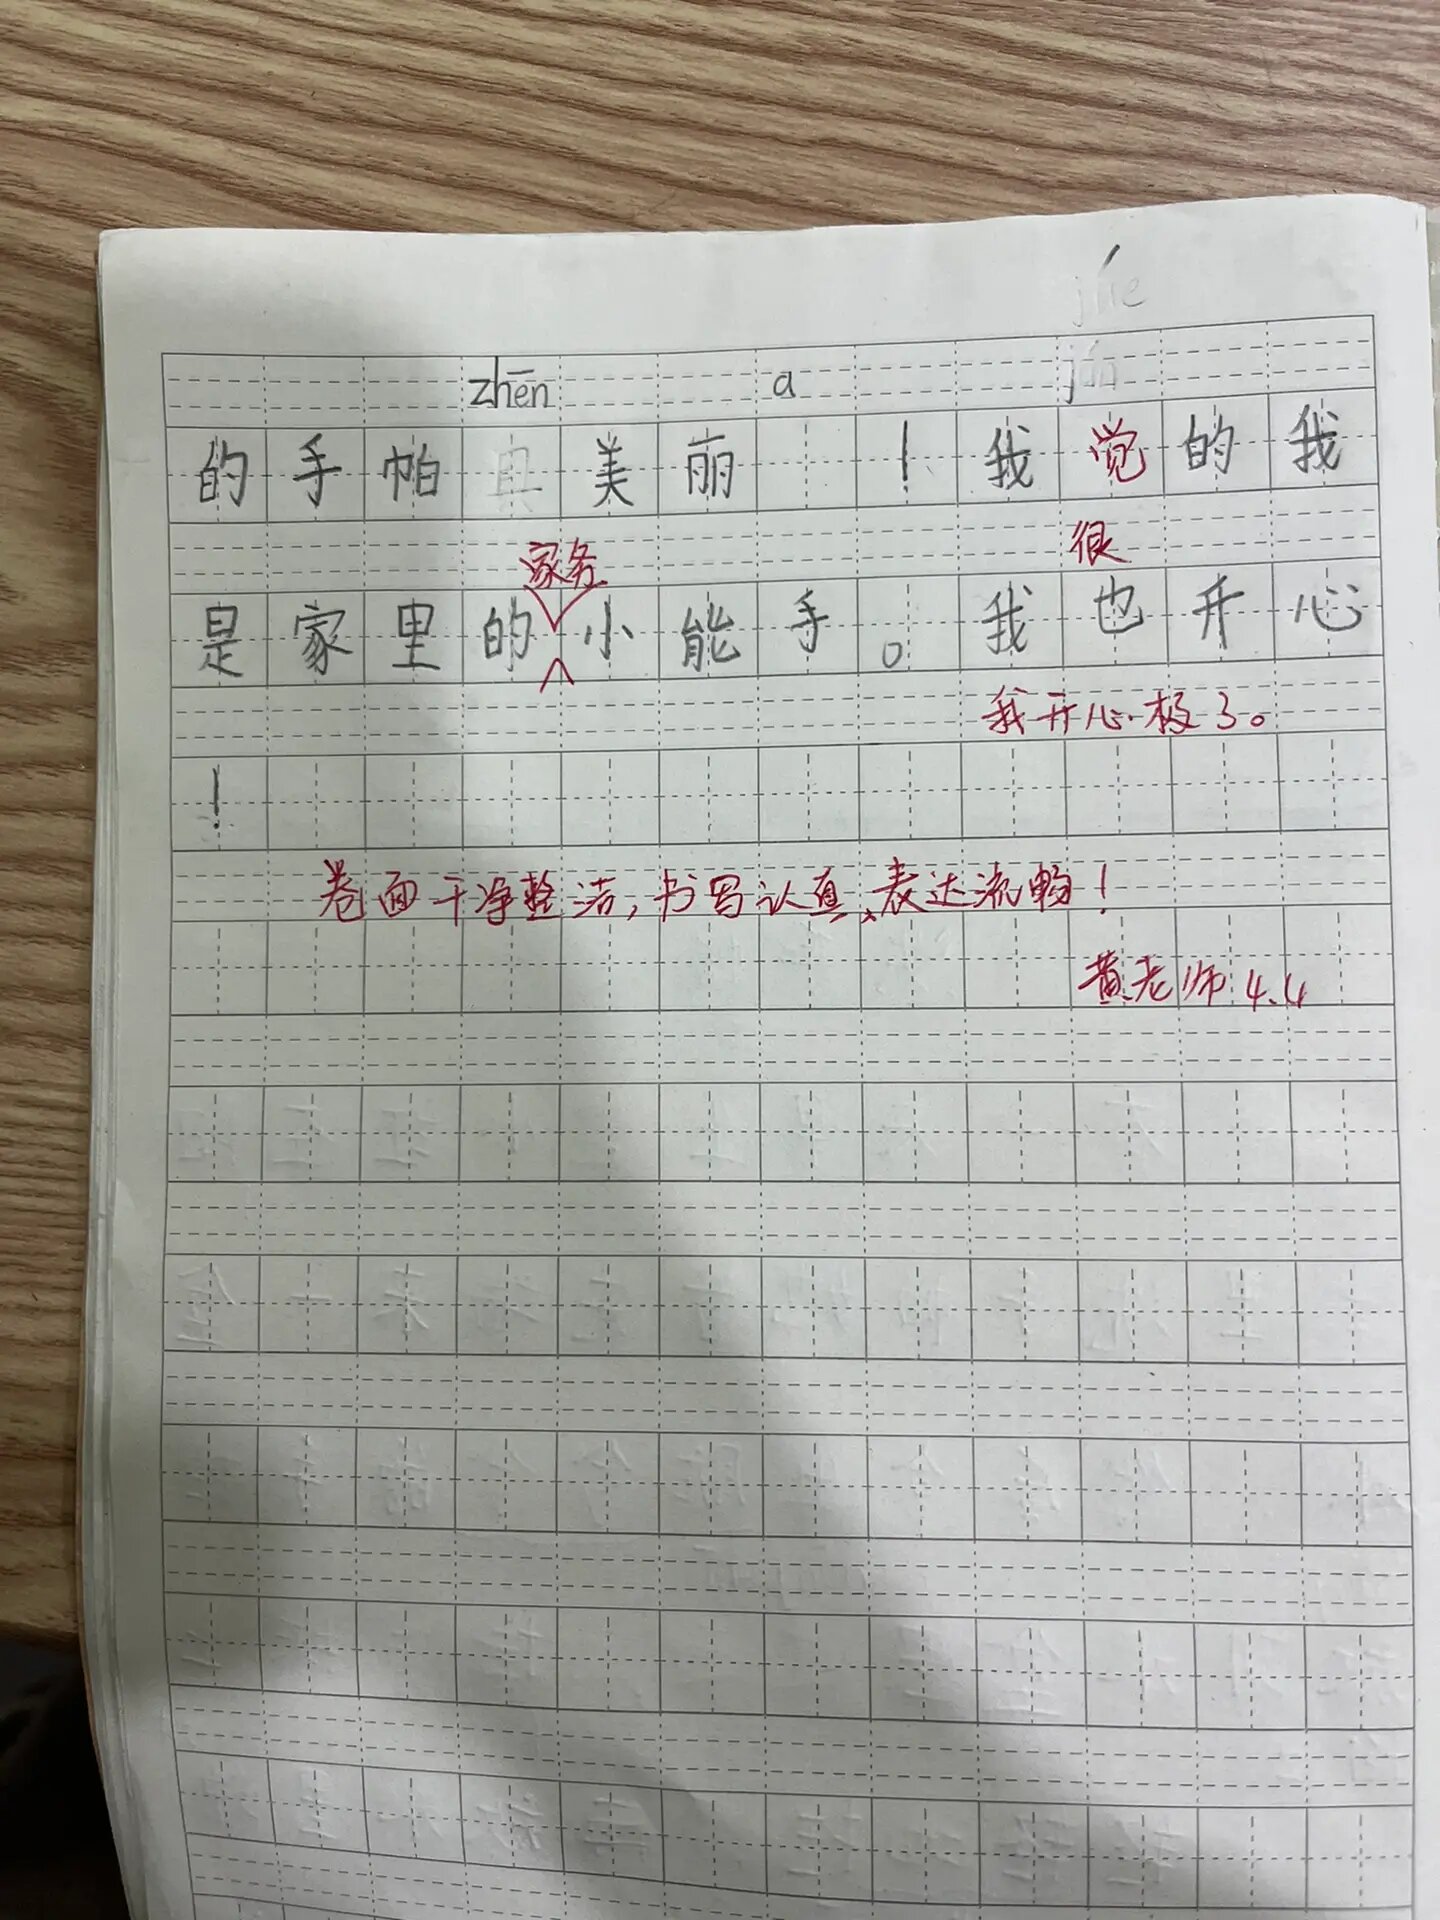 zhēn a
的手帕真美丽！我觉的我
家务 很
是家里的小能手。我也开心
我开心极了。
！
卷面干净整洁，书写认真、表达流畅！
黄老师 4.4